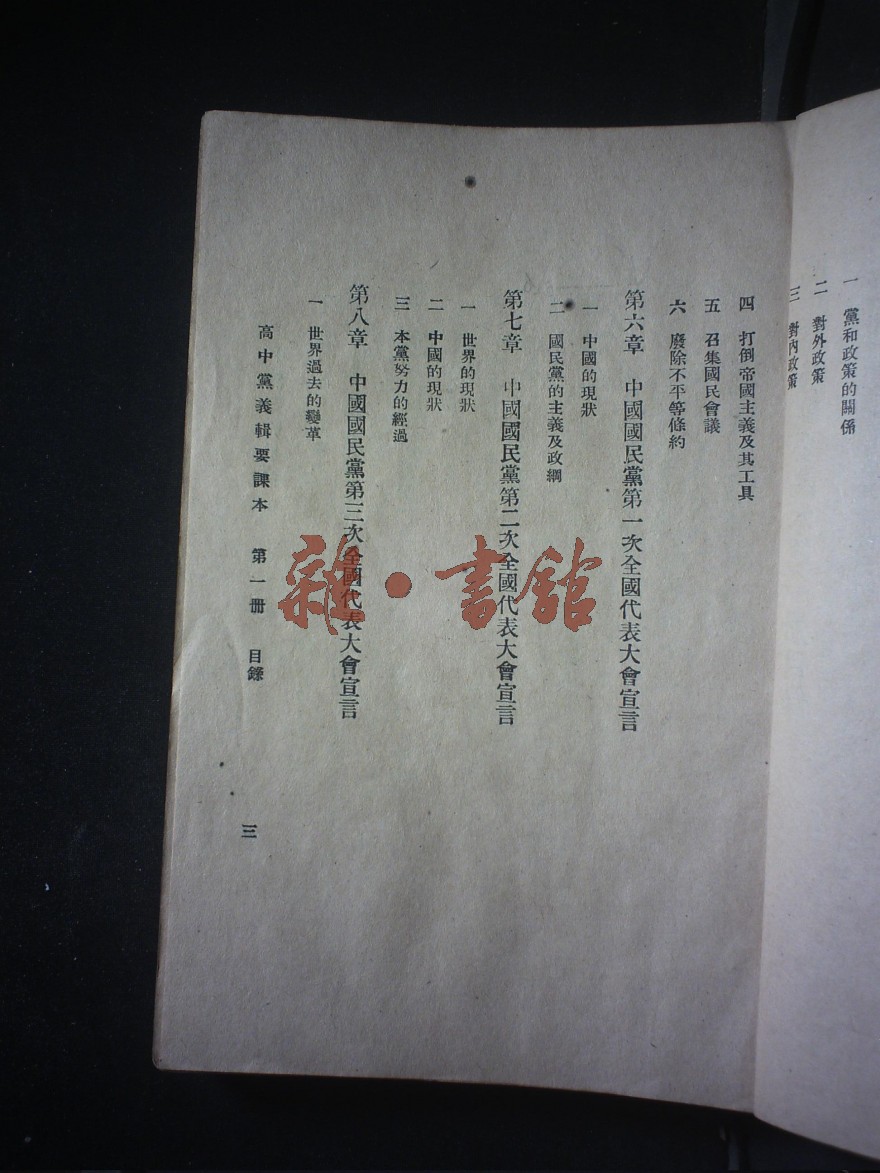 一　黨和政策的關係
二　對外政策
三　對內政策
四　打倒帝國主義及其工具
五　召集國民會議
六　廢除不平等條約
第六章　中國國民黨第一次全國代表大會宣言
一　中國的現狀
二　國民黨的主義及政綱
第七章　中國國民黨第二次全國代表大會宣言
一　世界的現狀
二　中國的現狀
三　本黨努力的經過
第八章　中國國民黨第三次全國代表大會宣言
一　世界過去的變革
高中黨義輯要課本　第一冊　目錄
三
雜·書館